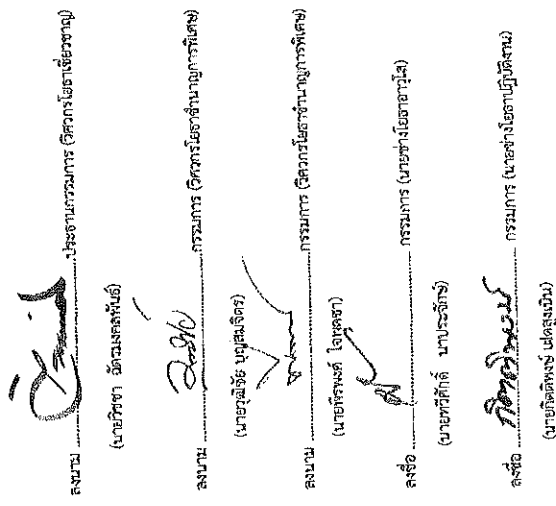 ลงนาม ประธานกรรมการ (วิศวกรโยธาเชี่ยวชาญ)
(นายวิชชา ฉัตรมงคลพันธ์)
ลงนาม กรรมการ (วิศวกรโยธาชำนาญการพิเศษ)
(นายวุฒิชัย บุญสมจิตร)
ลงนาม กรรมการ (วิศวกรโยธาชำนาญการพิเศษ)
(นายพีรพงศ์
ลงชื่อ กรรมการ (นายช่างโยธาอาวุโส)
(นายทวีศักดิ์ นาประจักษ์)
ลงชื่อ กิตติพงษ์ กรรมการ (นายช่างโยธาปฏิบัติงาน)
(นายกิตติพงษ์